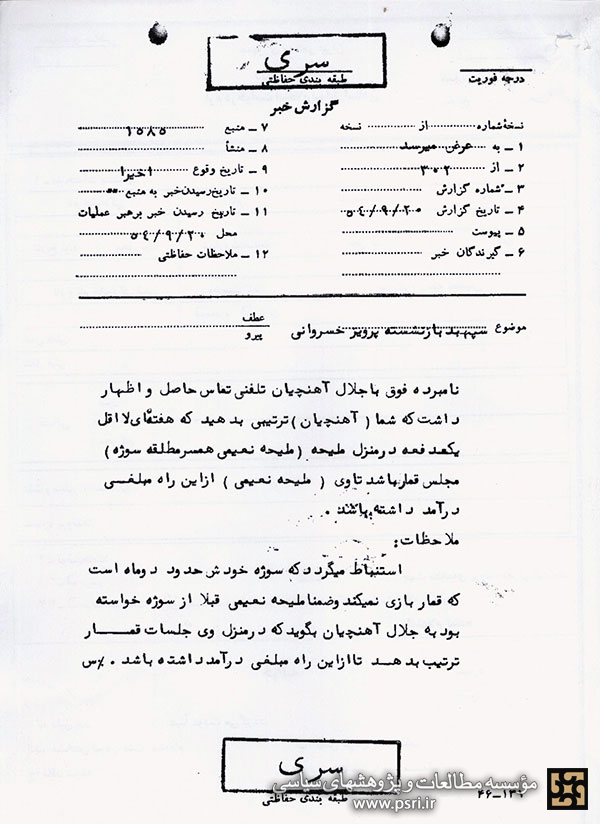 سری
طبقه بندی حفاظتی
درجه فوریت
گزارش خبر
نسخه شماره از نسخه
۱ ـ به عرض میرسد
۲ ـ از ۳۰۲
۳ ـ شماره گزارش
۴ ـ تاریخ گزارش ۵۴/۹/۲۰
۵ ـ پیوست
۶ ـ گیرندگان خبر
۷ ـ منبع ۱۵۸۵
۸ ـ منشأ
۹ ـ تاریخ وقوع اخیرا
۱۰ ـ تاریخ رسیدن خبر به منبع
۱۱ ـ تاریخ رسیدن خبر برهبر عملیات
محل ۵۴/۹/۲۰
۱۲ ـ ملاحظات حفاظتی
موضوع سپهبد بازنشسته پرویز خسروانی
عطف
پیرو
نامبرده فوق با جلال آهنچیان تلفنی تماس حاصل و اظهار
داشت که شما (آهنچیان) ترتیبی بدهید که هفته‌ای لااقل
یکدفعه در منزل ملیحه (ملیحه نعیمی همسر مطلقه سوژه)
مجلس قمار باشد تا وی (ملیحه نعیمی) از این راه مبلغی
درآمد داشته باشد .
ملاحظات:
استنباط میگردد که سوژه خودش حدود دو ماه است
که قمار بازی نمیکند وضمنا ملیحه نعیمی قبلا از سوژه خواسته
بود به جلال آهنچیان بگوید که در منزل وی جلسات قمار
ترتیب بدهد تا از این راه مبلغی درآمد داشته باشد . /س
سری
طبقه بندی حفاظتی
۴۶ــ۱۳۱
مؤسسه مطالعات و پژوهشهای سیاسی
www.psri.ir